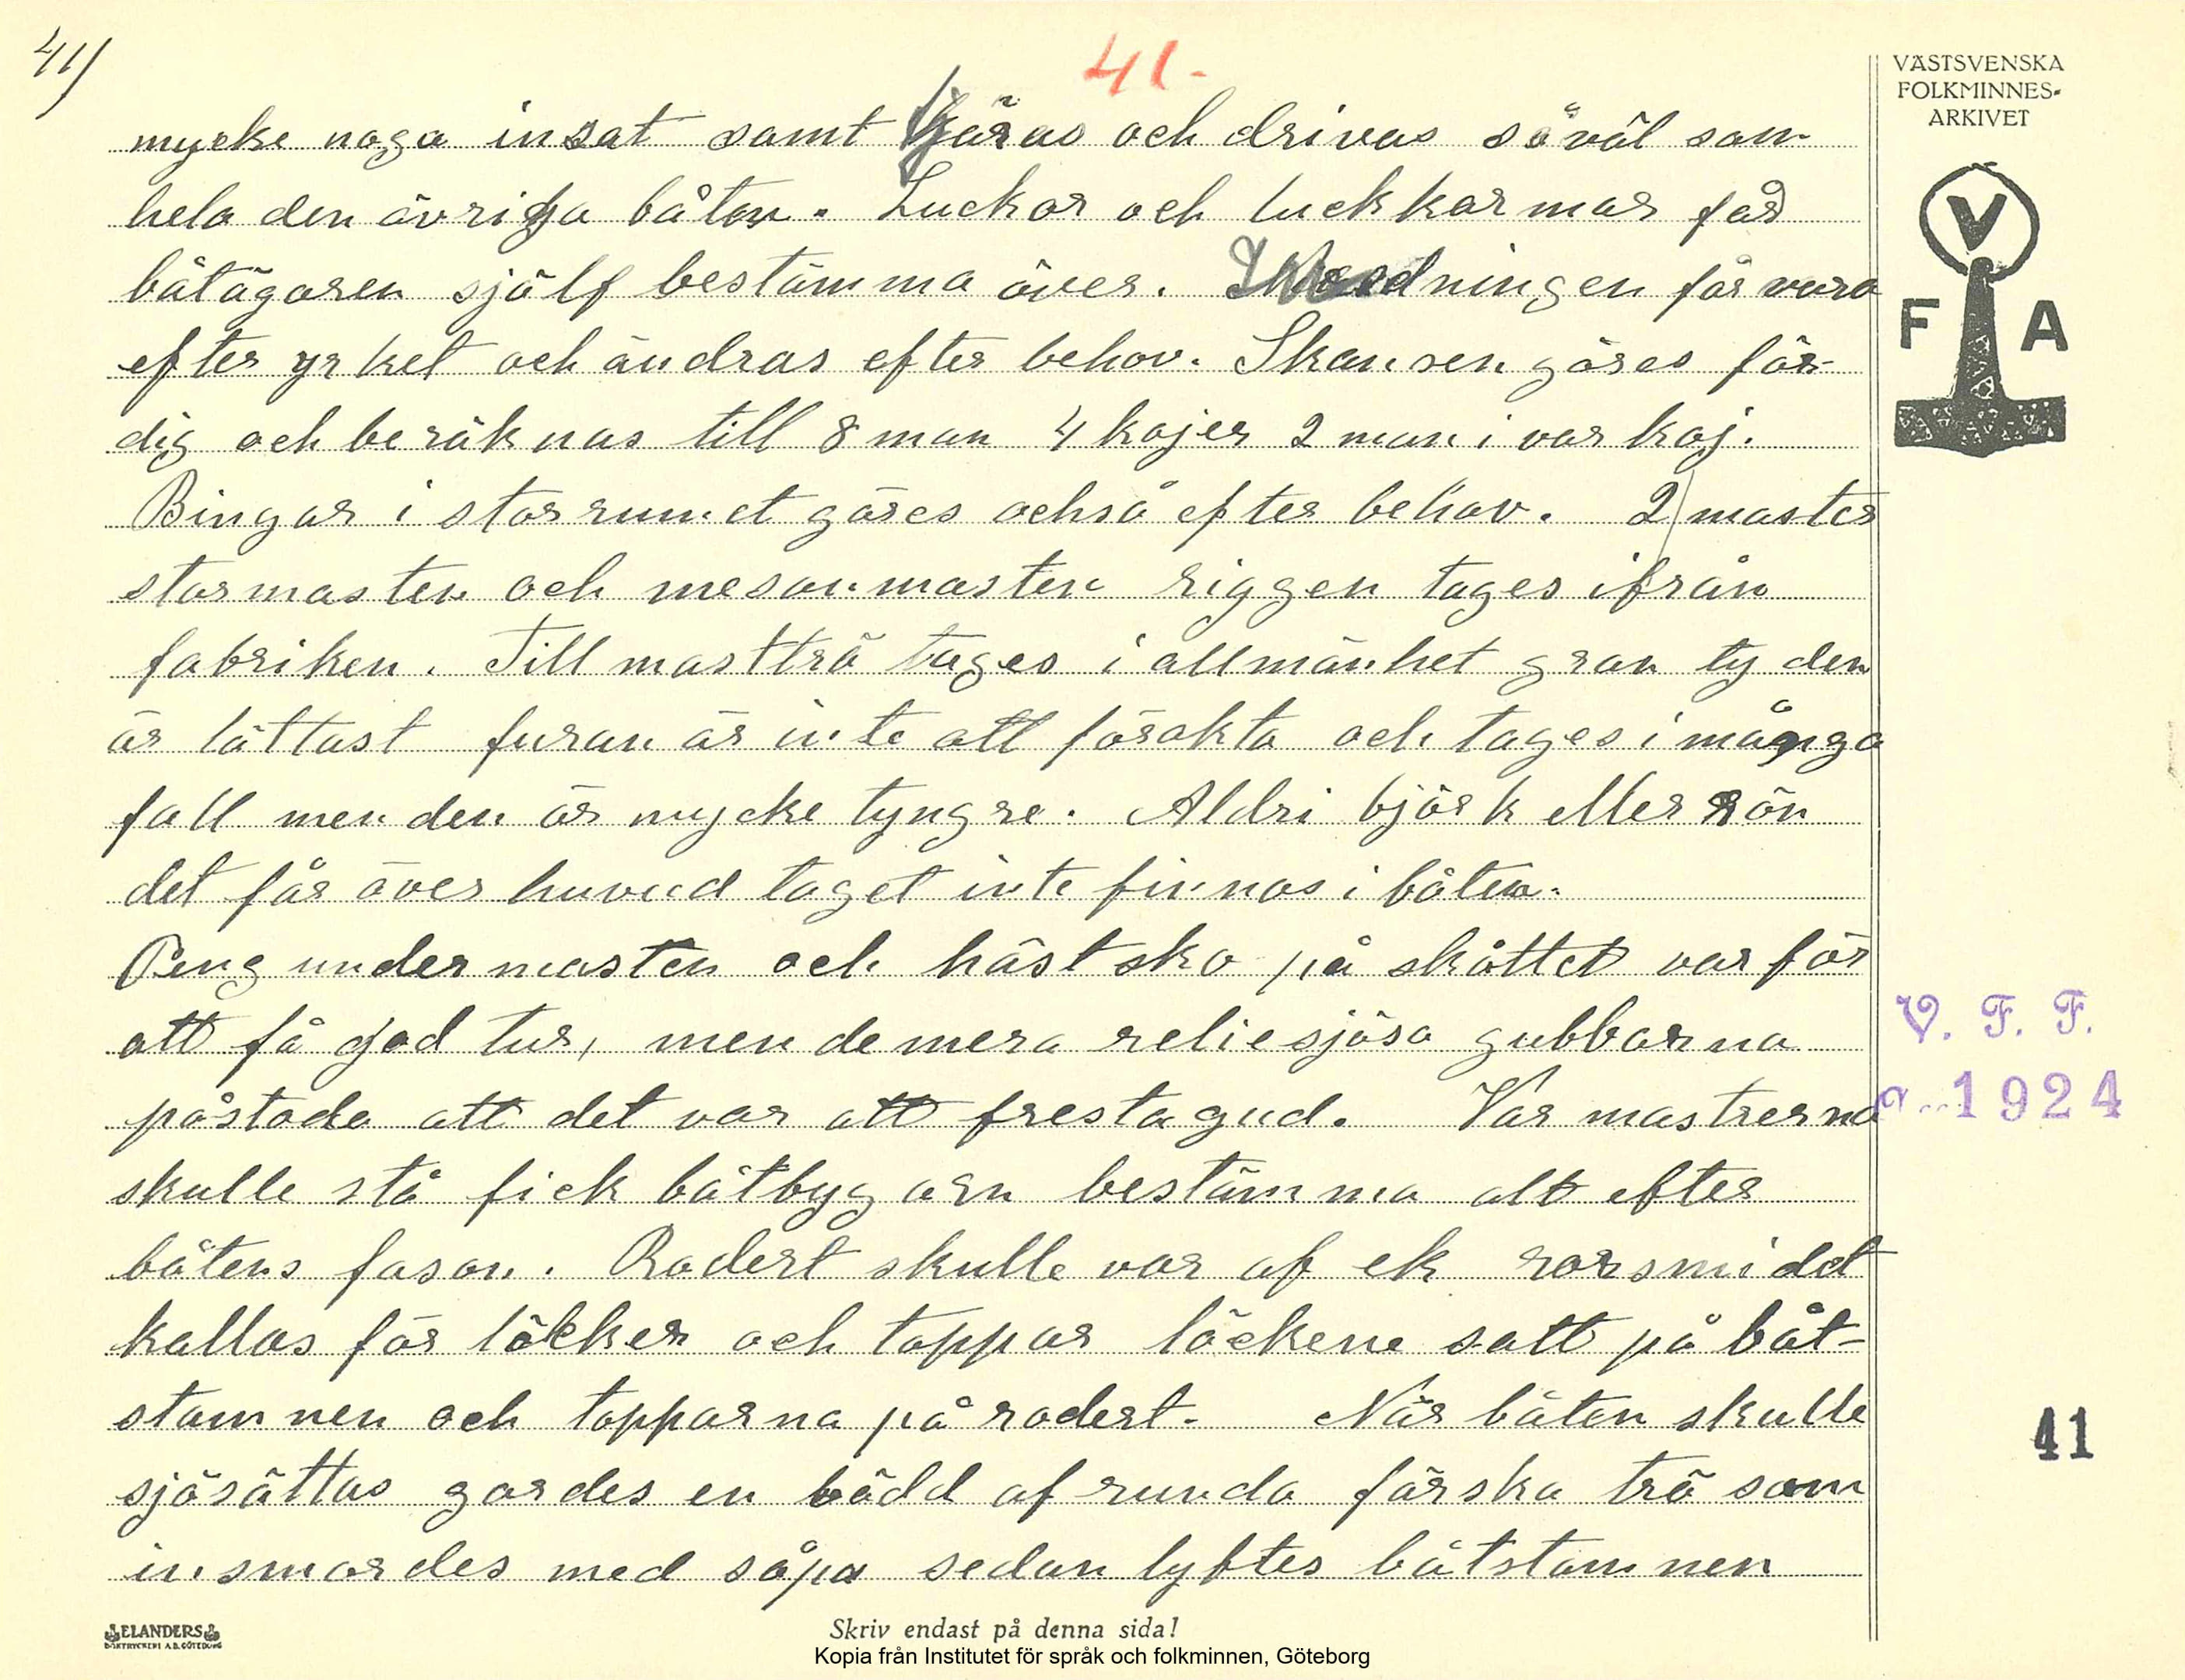 41)
41.
VÄSTSVENSKA
FOLKMINNES-
ARKIVET
mycke noga insat samt tjäras och drivas såväl som
hela den övriga båten. Luckor och luckkarmar får
båtägaren själf bestämma över. Inredningen får vara
efter yrket och ändras efter behov. Skansen göres fär-
dig och beräknas till 8 man 4 kojer 2 man i var koj.
Bingar i storrumet göres också efter behov. 2 master
stormasten och mesanmasten riggen tages ifrån
fabriken. Till mastträ tages i allmänhet gran ty den
är lättast furan är inte att förakta och tages i många
fall men den är mycke tyngre. Aldri björk eller rön
det får över huvud taget inte finnas i båten.
Peng under masten och hästsko på skåttet var för
att få god tur, men de mera reliesjösa gubbarna
påstode att det var att fresta gud. Var mastrerna
skulle stå fick båtbygarn bestämma alt efter
båtens fason. Rodert skulle var af ek rorsmidet
kallas för löcker och toppar löckene satt på båt-
stamnen och topparna på rodert. När båten skulle
sjösättas gordes en bädd af runda färska trä som
insmordes med såpa sedan lyftes båtstamnen
V
F A
V. F. F.
1924
41
ELANDERS
BOKTRYCKERI A.B. GÖTEBORG
Skriv endast på denna sida!
Kopia från Institutet för språk och folkminnen, Göteborg